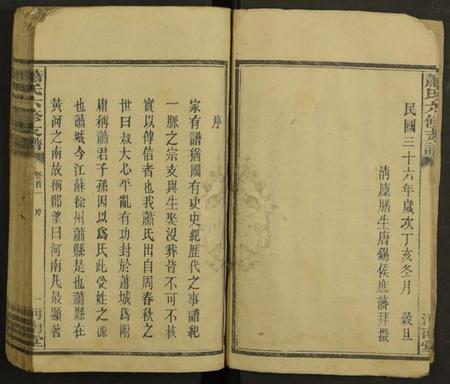 蕭氏六修支譜
民國三十六年歲次丁亥冬月 穀旦
清廩膳生唐錫侯庶藩拜撰
序
家有譜猶國有史史紀歷代之事譜紀
一脈之宗支與生娶沒葬皆不可不核
實以傳信者也我蕭氏出自周春秋之
世曰叔大心平亂有功封於蕭城為附
庸稱蕭君子孫因以為氏此受姓之源
也蕭城今江蘇徐州蕭縣是也蕭縣在
黃河之南故稱郡望曰河南凡最顯著
蕭氏六修支譜
卷首一 序
一 河南堂